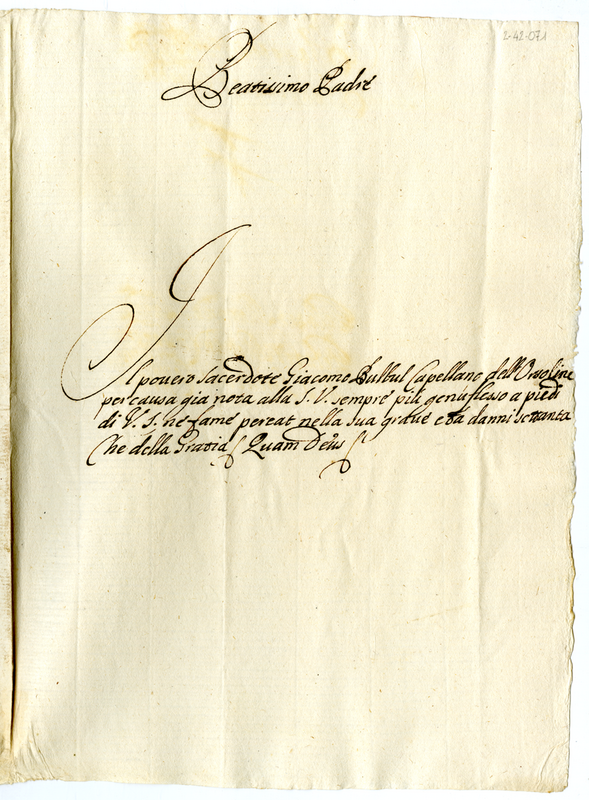 2-42-071
Beatissimo Padre
Il povero Sacerdote Giacomo Bulbul Capellano dell'Orsoline
per causa gia nota alla S. V. sempre più genuflesso a piedi
di V. S. ne fame pereat nella sua grave età d'anni settanta
Che della Gratia Quam Deus